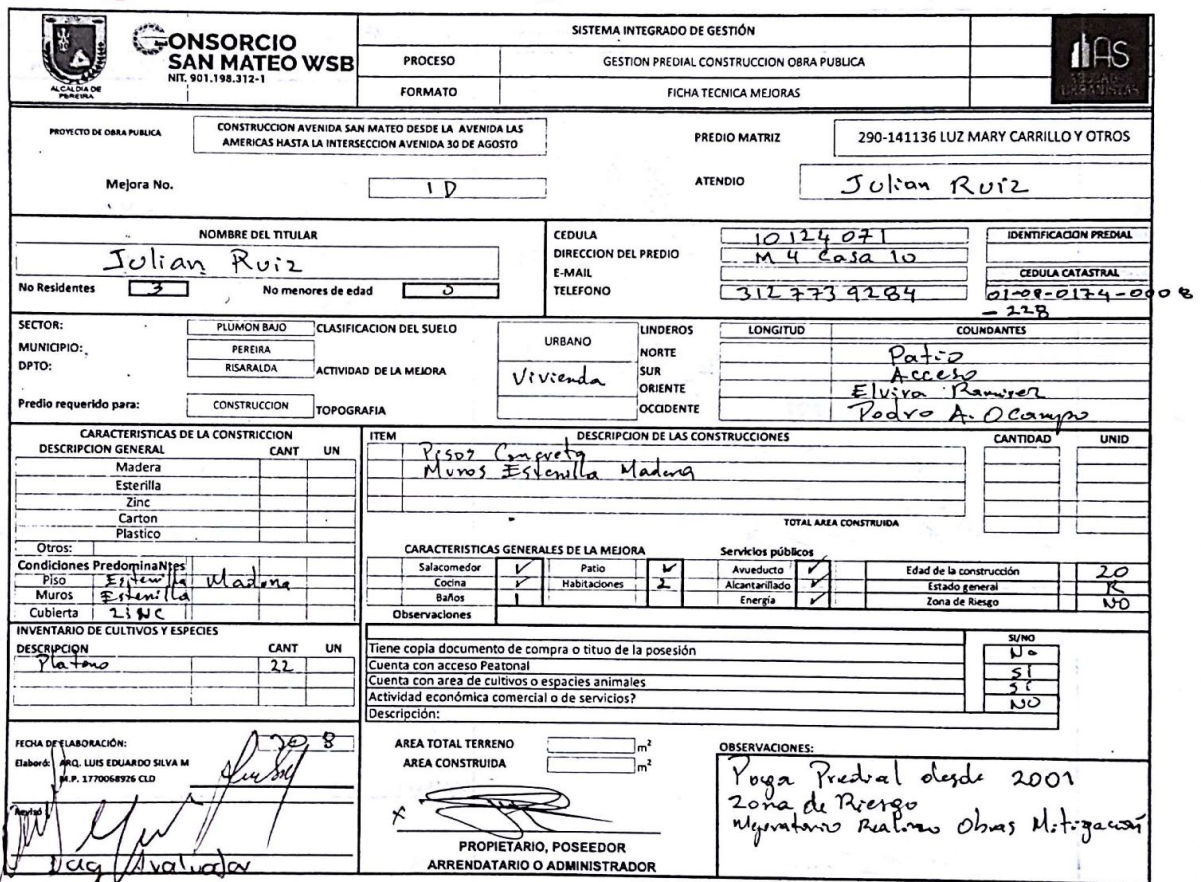 ALCALDIA DE
PEREIRA
CONSORCIO
SAN MATEO WSB
NIT. 901.198.312-1
SISTEMA INTEGRADO DE GESTIÓN
PROCESO
GESTION PREDIAL CONSTRUCCION OBRA PUBLICA
FORMATO
FICHA TECNICA MEJORAS
AS
URBANISTAS
PROYECTO DE OBRA PUBLICA
CONSTRUCCION AVENIDA SAN MATEO DESDE LA AVENIDA LAS
AMERICAS HASTA LA INTERSECCION AVENIDA 30 DE AGOSTO
PREDIO MATRIZ
290-141136 LUZ MARY CARRILLO Y OTROS
Mejora No.
1 D
ATENDIO
Julian Ruiz
NOMBRE DEL TITULAR
Julian Ruiz
No Residentes 3
No menores de edad
CEDULA 10124071
DIRECCION DEL PREDIO M 4 Casa 10
E-MAIL
TELEFONO 3127739284
IDENTIFICACION PREDIAL
CEDULA CATASTRAL
01-08-0174-0008
- 228
SECTOR: PLUMON BAJO
MUNICIPIO: PEREIRA
DPTO: RISARALDA
Predio requerido para: CONSTRUCCION
CLASIFICACION DEL SUELO URBANO
ACTIVIDAD DE LA MEJORA Vivienda
TOPOGRAFIA
LINDEROS LONGITUD COLINDANTES
NORTE Patio
SUR Acceso
ORIENTE Elvira Ramirez
OCCIDENTE Pedro A. Ocampo
CARACTERISTICAS DE LA CONSTRICCION
DESCRIPCION GENERAL CANT UN
Madera
Esterilla
Zinc
Carton
Plastico
Otros:
Condiciones PredominaNtes
Piso Esterilla Madera
Muros Esterilla
Cubierta ZINC
ITEM DESCRIPCION DE LAS CONSTRUCCIONES CANTIDAD UNID
Pisos Concreto
Muros Esterilla Madera
TOTAL AREA CONSTRUIDA
CARACTERISTICAS GENERALES DE LA MEJORA
Salacomedor ✓ Patio ✓
Cocina ✓ Habitaciones 2
Baños 1
Observaciones
Servicios públicos
Avueducto ✓
Alcantarillado ✓
Energía ✓
Edad de la construcción 20
Estado general R
Zona de Riesgo NO
INVENTARIO DE CULTIVOS Y ESPECIES
DESCRIPCION CANT UN
Platano 22
SI/NO
Tiene copia documento de compra o tituo de la posesión No
Cuenta con acceso Peatonal SI
Cuenta con area de cultivos o espacies animales SI
Actividad económica comercial o de servicios? NO
Descripción:
FECHA DE ELABORACIÓN:
Elaboró: ARQ. LUIS EDUARDO SILVA M
M.P. 1770068926 CLD
Revisó
Avaluador
AREA TOTAL TERRENO m²
AREA CONSTRUIDA m²
X
PROPIETARIO, POSEEDOR
ARRENDATARIO O ADMINISTRADOR
OBSERVACIONES:
Paga Predial desde 2001
Zona de Riesgo
Mejoratario Realizo Obras Mitigación